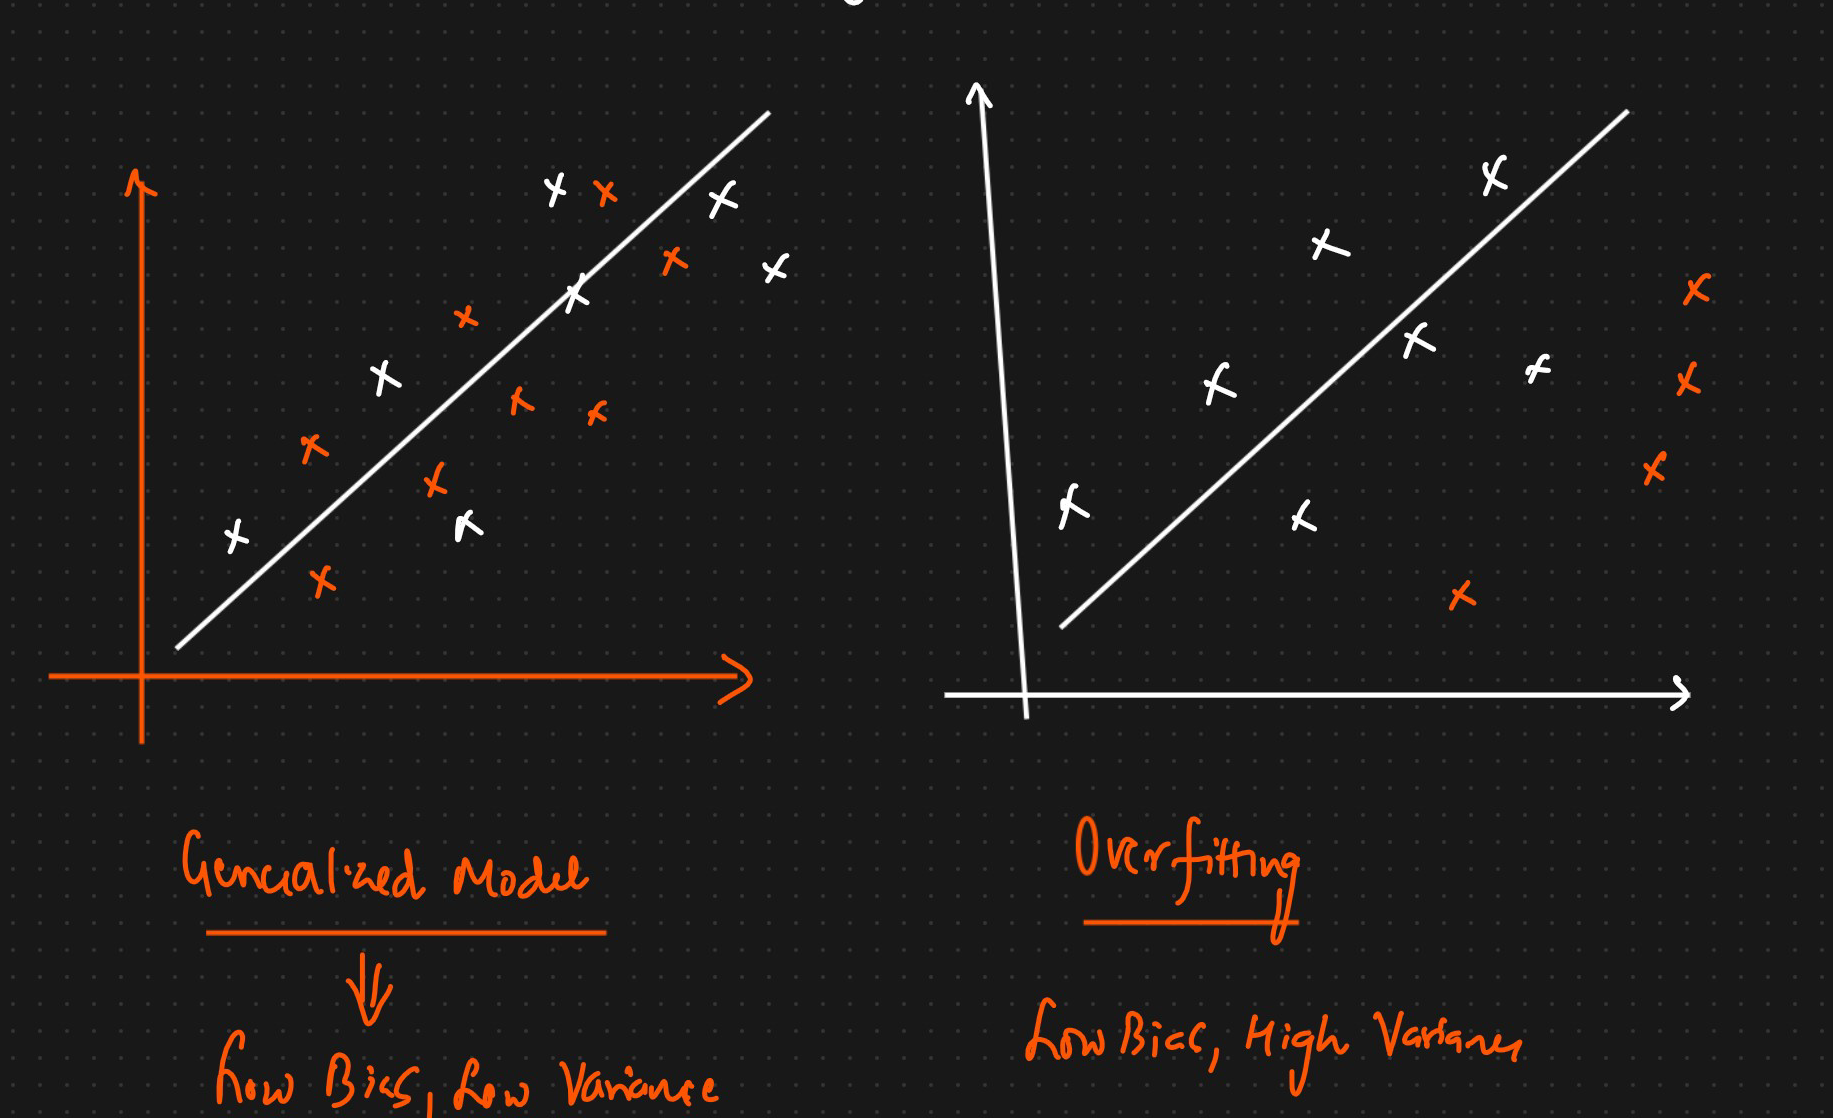 Generalized Model
Low Bias, Low Variance
Overfitting
Low Bias, High Variance